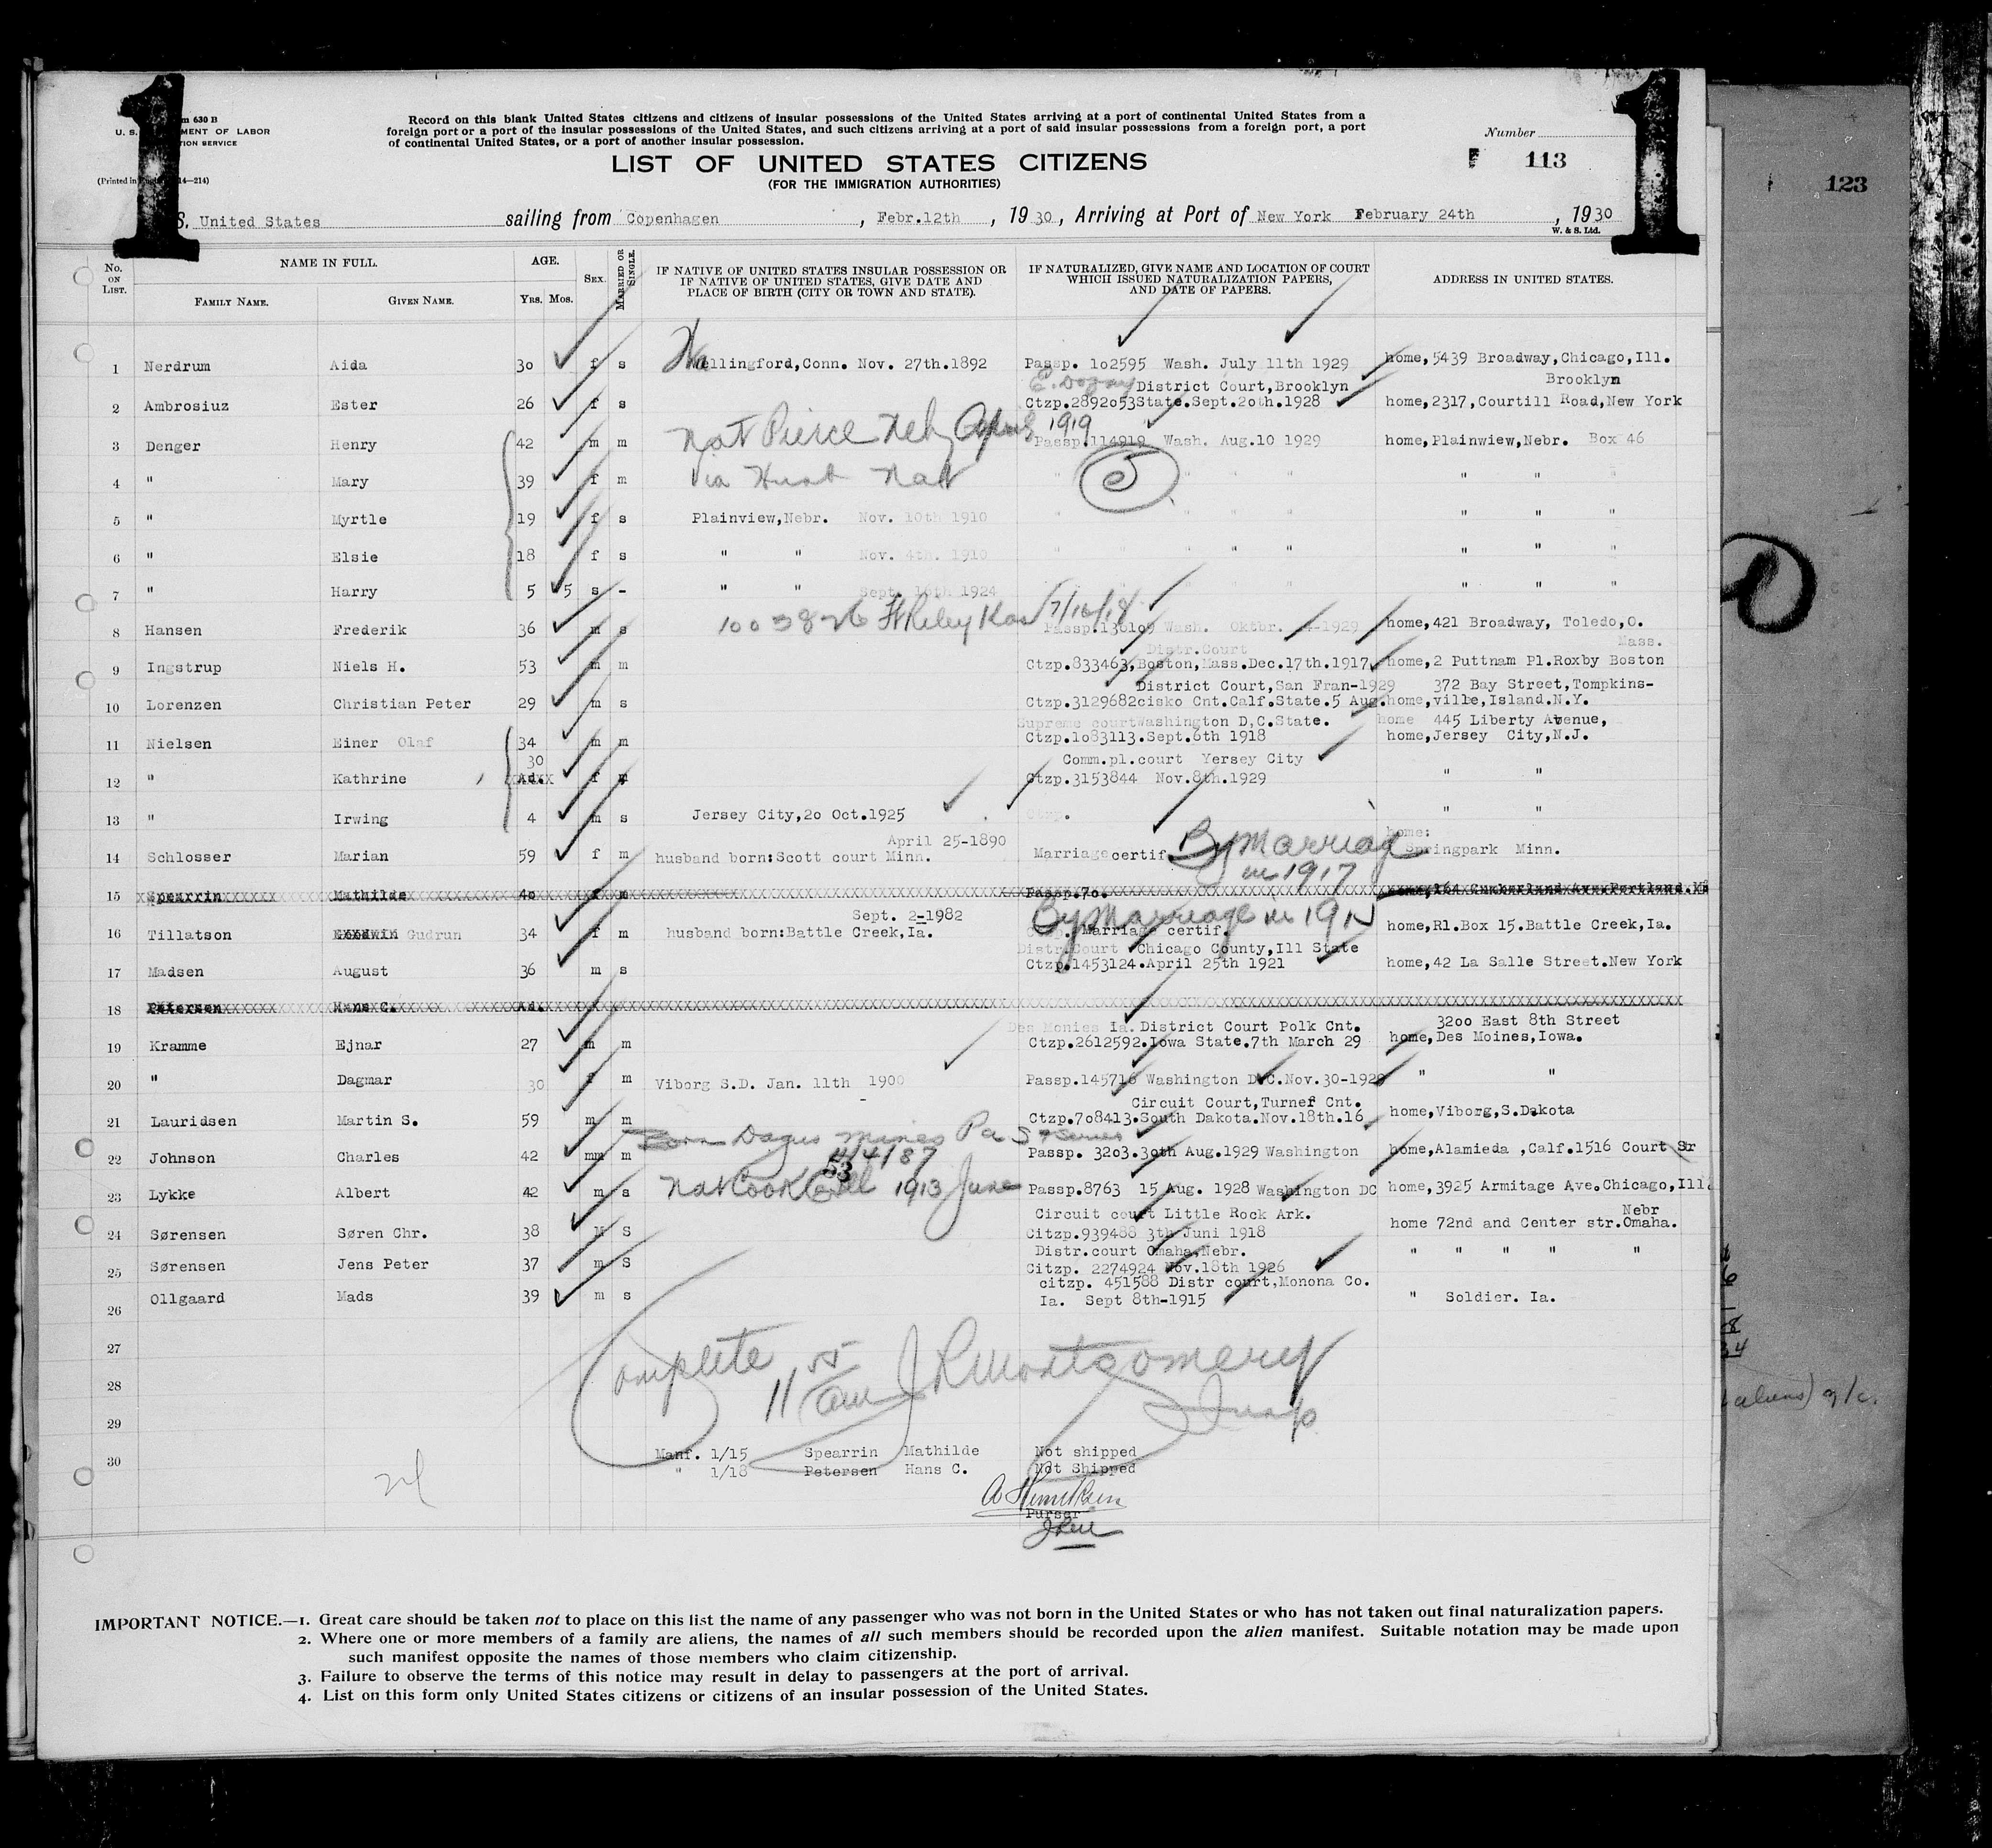 1
1
m 630 B
U. S. MENT OF LABOR
TION SERVICE
(Printed in England 14—214)
Record on this blank United States citizens and citizens of insular possessions of the United States arriving at a port of continental United States from a
foreign port or a port of the insular possessions of the United States, and such citizens arriving at a port of said insular possessions from a foreign port, a port
of continental United States, or a port of another insular possession.
Number
113
123
LIST OF UNITED STATES CITIZENS
(FOR THE IMMIGRATION AUTHORITIES)
S. United States sailing from Copenhagen , Febr.12th , 19 30 , Arriving at Port of New York February 24th , 19 30
W. & S. Ltd.
No. ON LIST. NAME IN FULL. FAMILY NAME. GIVEN NAME. AGE. YRS. MOS. SEX. MARRIED OR SINGLE. IF NATIVE OF UNITED STATES INSULAR POSSESSION OR IF NATIVE OF UNITED STATES, GIVE DATE AND PLACE OF BIRTH (CITY OR TOWN AND STATE). IF NATURALIZED, GIVE NAME AND LOCATION OF COURT WHICH ISSUED NATURALIZATION PAPERS, AND DATE OF PAPERS. ADDRESS IN UNITED STATES.
1 Nerdrum Aida 30 f s Wallingford,Conn. Nov. 27th.1892 Passp. 1o2595 Wash. July 11th 1929 home,5439 Broadway,Chicago,Ill.
District Court,Brooklyn Brooklyn
2 Ambrosiuz Ester 26 f s Ctzp.2892o53State.Sept.2oth.1928 home,2317,Courtill Road,New York
Nat Pierce Neb April 1919
3 Denger Henry 42 m m Passp.114919 Wash. Aug.10 1929 home,Plainwiew,Nebr. Box 46
4 " Mary 39 f m via Husb Nat " " " " " " "
5 " Myrtle 19 f s Plainview,Nebr. Nov. 10th 1910 " " " " " "
6 " Elsie 18 f s " " Nov. 4th. 1910 " " " " " " " "
7 " Harry 5 5 s - " " Sept. 16th 1924 " " " " " "
1003826 Ft Riley Kas 7/16/18
8 Hansen Frederik 36 m s Passp.1361o9 Wash. Oktbr. 4-1929 home,421 Broadway, Toledo,O.
Distr.Court Mass.
9 Ingstrup Niels H. 53 m m Ctzp.833463,Boston,Mass.Dec.17th.1917 home,2 Puttnam Pl.Roxby Boston
District Court,San Fran-1929 372 Bay Street,Tompkins-
10 Lorenzen Christian Peter 29 m s Ctzp.3129682cisko Cnt.Calf.State.5 Aug. home,ville,Island.N.Y.
Supreme courtWashington D,C.State. home 445 Liberty Avenue,
11 Nielsen Einer Olaf 34 m m Ctzp.1o83113.Sept.6th 1918 home,Jersey City,N.J.
30 Comm.pl.court Yersey City
12 " Kathrine Ad. f m Ctzp.3153844 Nov.8th.1929 " "
13 " Irwing 4 m s Jersey City,2o Oct.1925 Ctzp. " "
April 25-1890 home:
14 Schlosser Marian 59 f m husband born:Scott court Minn. Marriage certif. By Marriage in 1917 Springpark Minn.
15 Spearrin Mathilde 4o f m Passp.7o. home,164 Cumberland Ave.Portland.
Sept. 2-1982 By Marriage in
16 Tillatson Gudrun 34 f m husband born:Battle Creek,Ia. Marriage certif. home,R1.Box 15.Battle Creek,Ia.
Distr.Court Chicago County,Ill State
17 Madsen August 36 m s Ctzp.1453124.April 25th 1921 home,42 La Salle Street.New York
18 Petersen Hans C. Ad.
Des Monies Ia.District Court Polk Cnt. 32oo East 8th Street
19 Kramme Ejnar 27 m m Ctzp.2612592.Iowa State.7th March 29 home,Des Moines,Iowa.
20 " Dagmar 30 f m Viborg S.D. Jan. 11th 1900 Passp.145716 Washington D.C.Nov.30-1928 " "
Circuit Court,Turner Cnt.
21 Lauridsen Martin S. 59 m m Ctzp.7o8413.South Dakota.Nov.18th.16 home,Viborg,S.Dakota
Born Dagus Mines Pa
22 Johnson Charles 42 mm m 4/4/87 Passp. 32o3.3oth Aug.1929 Washington home,Alamieda ,Calf.1516 Court Sr
53
23 Lykke Albert 42 m s Nat Cook Co Ill 1913 June Passp.8763 15 Aug. 1928 Washington DC home,3925 Armitage Ave.Chicago,Ill.
Circuit court Little Rock Ark. Nebr
24 Sørensen Søren Chr. 38 M S Citzp.939488 3th Juni 1918 home 72nd and Center str.Omaha.
Distr.court Omaha,Nebr.
25 Sørensen Jens Peter 37 m S Citzp. 2274924 Nov.18th 1926 " " " " "
citzp. 451588 Distr court,Monona Co.
26 Ollgaard Mads 39 m s Ia. Sept 8th-1915 " Soldier. Ia.
27
28
29
30
Complete 11 55 am J R Montgomery
Insp
Manf. 1/15 Spearrin Mathilde Not shipped
" 1/18 Petersen Hans C. Not Shipped
Purser
aliens)
IMPORTANT NOTICE.—1. Great care should be taken not to place on this list the name of any passenger who was not born in the United States or who has not taken out final naturalization papers.
2. Where one or more members of a family are aliens, the names of all such members should be recorded upon the alien manifest. Suitable notation may be made upon
such manifest opposite the names of those members who claim citizenship.
3. Failure to observe the terms of this notice may result in delay to passengers at the port of arrival.
4. List on this form only United States citizens or citizens of an insular possession of the United States.